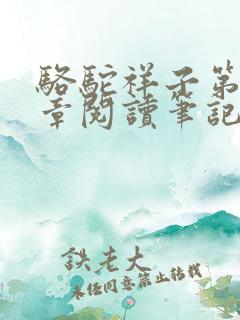 駱駝祥子第
章閱讀筆記
鉄老大
未經同意禁止轉載